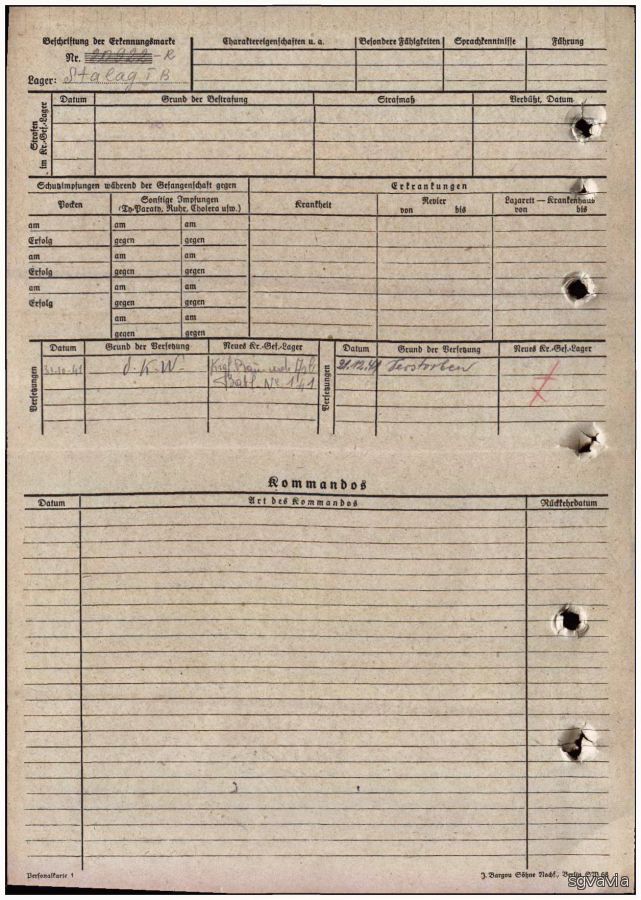 Beschriftung der Erkennungsmarke
Nr. -R
Lager: Stalag I B
Charaktereigenschaften u. a.
Besondere Fähigkeiten
Sprachkenntnisse
Führung
Strafen
im Kr.-Gef.-Lager
Datum
Grund der Bestrafung
Strafmaß
Verbüßt, Datum
Schutzimpfungen während der Gefangenschaft gegen
Erkrankungen
Pocken
Sonstige Impfungen
(Ty-Paraty, Ruhr, Cholera usw.)
Krankheit
Revier
von bis
Lazarett — Krankenhaus
von bis
am am am
Erfolg gegen gegen
am am am
Erfolg gegen gegen
am am am
Erfolg gegen gegen
am am
gegen gegen
Versetzungen
Datum
Grund der Versetzung
Neues Kr.-Gef.-Lager
31.10.41
Versetzungen
Datum
Grund der Versetzung
Neues Kr.-Gef.-Lager
21.12.41 Verstorben
Kommandos
Datum
Art des Kommandos
Rückkehrdatum
Personalkarte 1
J. Bargou Söhne Nachf., Berlin SW 68
sgvavia